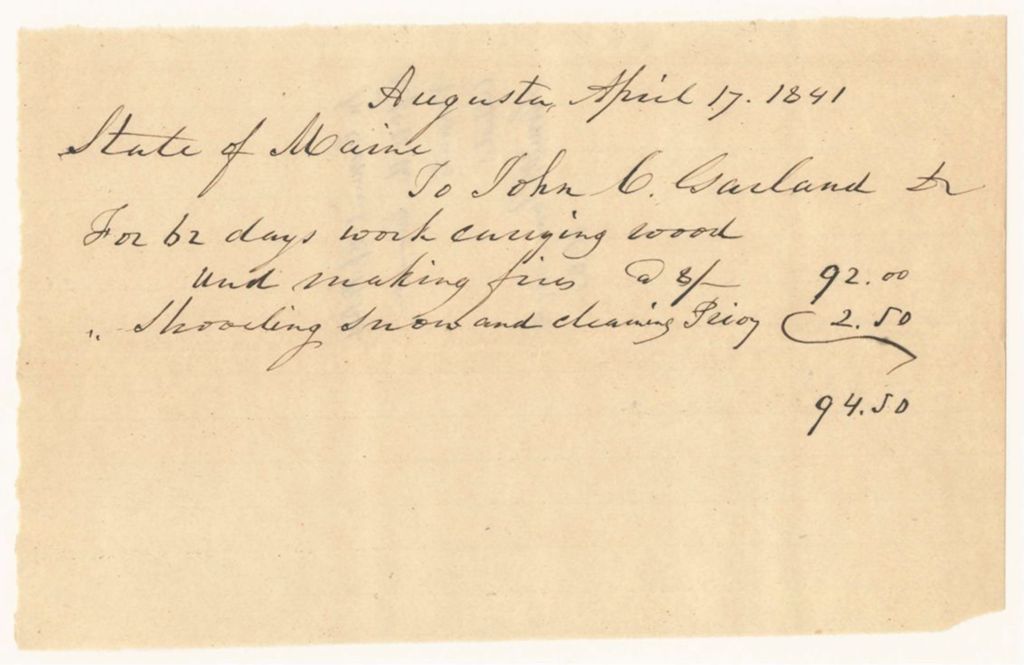 Augusta, April 17. 1841
State of Maine
To John C. Garland Dr
For 62 days work carrying wood
and making fires @ 8/ 92.00
" Shoveling snow and cleaning Privy 2.50
94.50